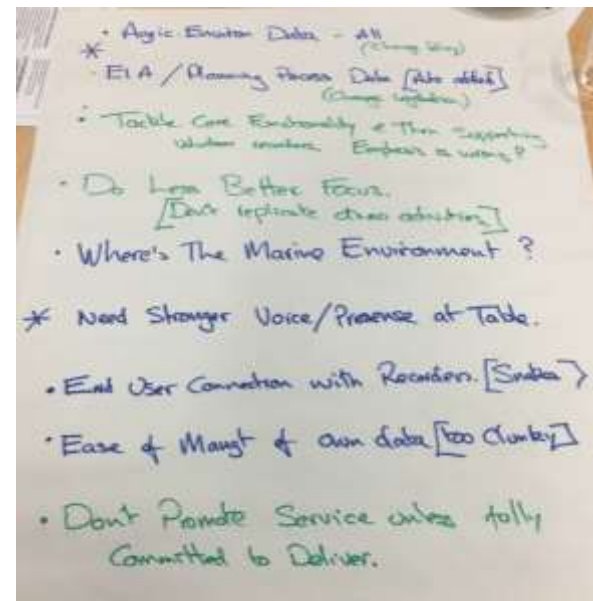 Data - All
*
· EIA / Planning Process Data
(Change legislation)
· Tackle Core Functionality & Then Supporting
Emphasis is wrong?
· Do Less Better Focus.
[Don't replicate other
· Where's The Marine Environment ?
* Need Stronger Voice/Presence at Table.
· End User Connection with Recorders.
· Ease of Mangt of own data [too Clunky]
· Don't Promote Service unless fully
Committed to Deliver.